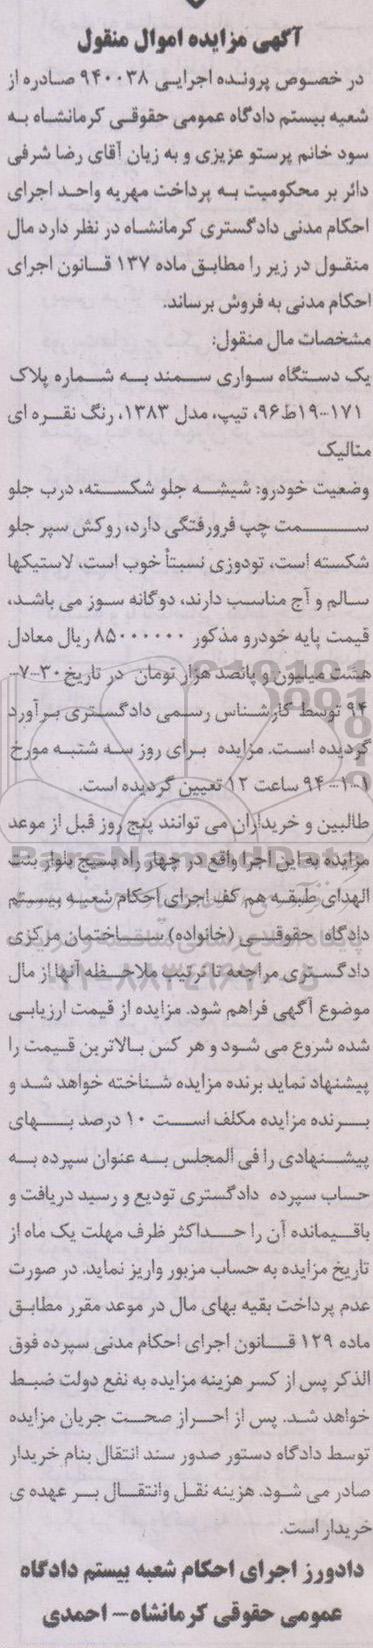 آگهی مزایده اموال منقول
در خصوص پرونده اجرایی ۹۴۰۰۳۸ صادره از
شعبه بیستم دادگاه عمومی حقوقی کرمانشاه به
سود خانم پرستو عزیزی و به زیان آقای رضا شرفی
دائر بر محکومیت به پرداخت مهریه واحد اجرای
احکام مدنی دادگستری کرمانشاه در نظر دارد مال
منقول در زیر را مطابق ماده ۱۳۷ قانون اجرای
احکام مدنی به فروش برساند.
مشخصات مال منقول:
یک دستگاه سواری سمند به شماره پلاک
۱۷۱-۱۹ط۹۶، تیپ، مدل ۱۳۸۳، رنگ نقره ای
متالیک
وضعیت خودرو: شیشه جلو شکسته، درب جلو
سمت چپ فرورفتگی دارد، روکش سپر جلو
شکسته است، تودوزی نسبتاً خوب است، لاستیکها
سالم و آج مناسب دارند، دوگانه سوز می باشد،
قیمت پایه خودرو مذکور ۸۵۰۰۰۰۰۰ ریال معادل
هشت میلیون و پانصد هزار تومان در تاریخ ۳۰-۷-
۹۴ توسط کارشناس رسمی دادگستری برآورد
گردیده است. مزایده برای روز سه شنبه مورخ
۱-۱۰-۹۴ ساعت ۱۲ تعیین گردیده است.
طالبین و خریداران می توانند پنج روز قبل از موعد
مزایده به این اجرا واقع در چهار راه بسیج بلوار بنت
الهدای طبقه هم کف اجرای احکام شعبه بیستم
دادگاه حقوقی (خانواده) ساختمان مرکزی
دادگستری مراجعه تا ترتیب ملاحظه آنها از مال
موضوع آگهی فراهم شود. مزایده از قیمت ارزیابی
شده شروع می شود و هر کس بالاترین قیمت را
پیشنهاد نماید برنده مزایده شناخته خواهد شد و
برنده مزایده مکلف است ۱۰ درصد بهای
پیشنهادی را فی المجلس به عنوان سپرده به
حساب سپرده دادگستری تودیع و رسید دریافت و
باقیمانده آن را حداکثر ظرف مهلت یک ماه از
تاریخ مزایده به حساب مزبور واریز نماید. در صورت
عدم پرداخت بقیه بهای مال در موعد مقرر مطابق
ماده ۱۲۹ قانون اجرای احکام مدنی سپرده فوق
الذکر پس از کسر هزینه مزایده به نفع دولت ضبط
خواهد شد. پس از احراز صحت جریان مزایده
توسط دادگاه دستور صدور سند انتقال بنام خریدار
صادر می شود. هزینه نقل وانتقال بر عهده ی
خریدار است.
دادورز اجرای احکام شعبه بیستم دادگاه
عمومی حقوقی کرمانشاه- احمدی